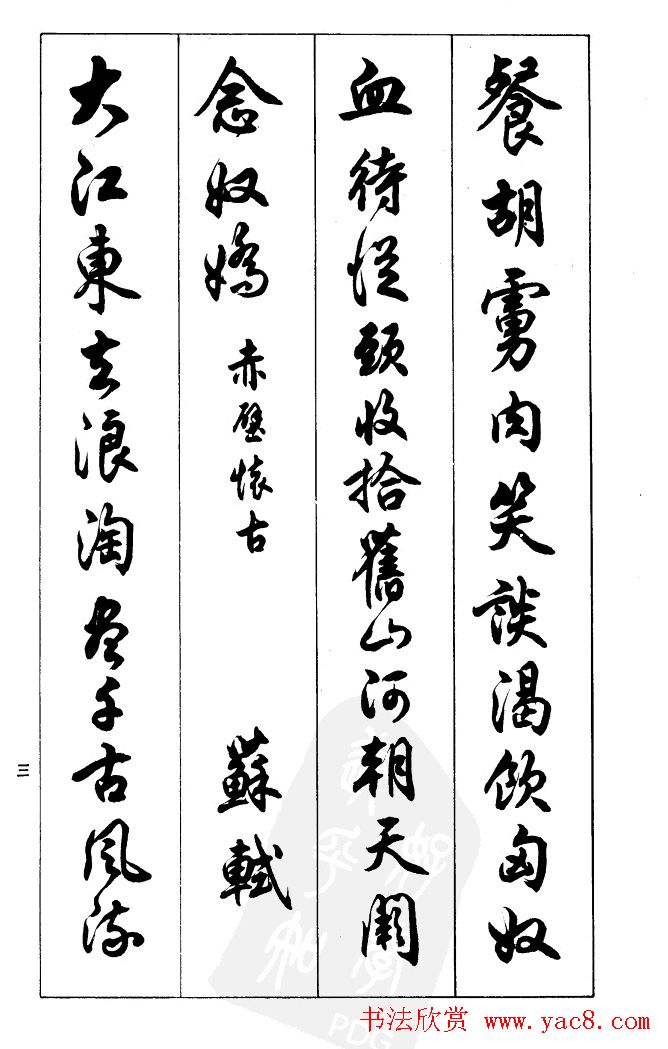 餐胡虜肉笑談渴飲匈奴
血待從頭收拾舊山河朝天闕
念奴嬌 赤壁懷古 蘇軾
大江東去浪淘盡千古風流
三
PDG
书法欣赏 www.yac8.com